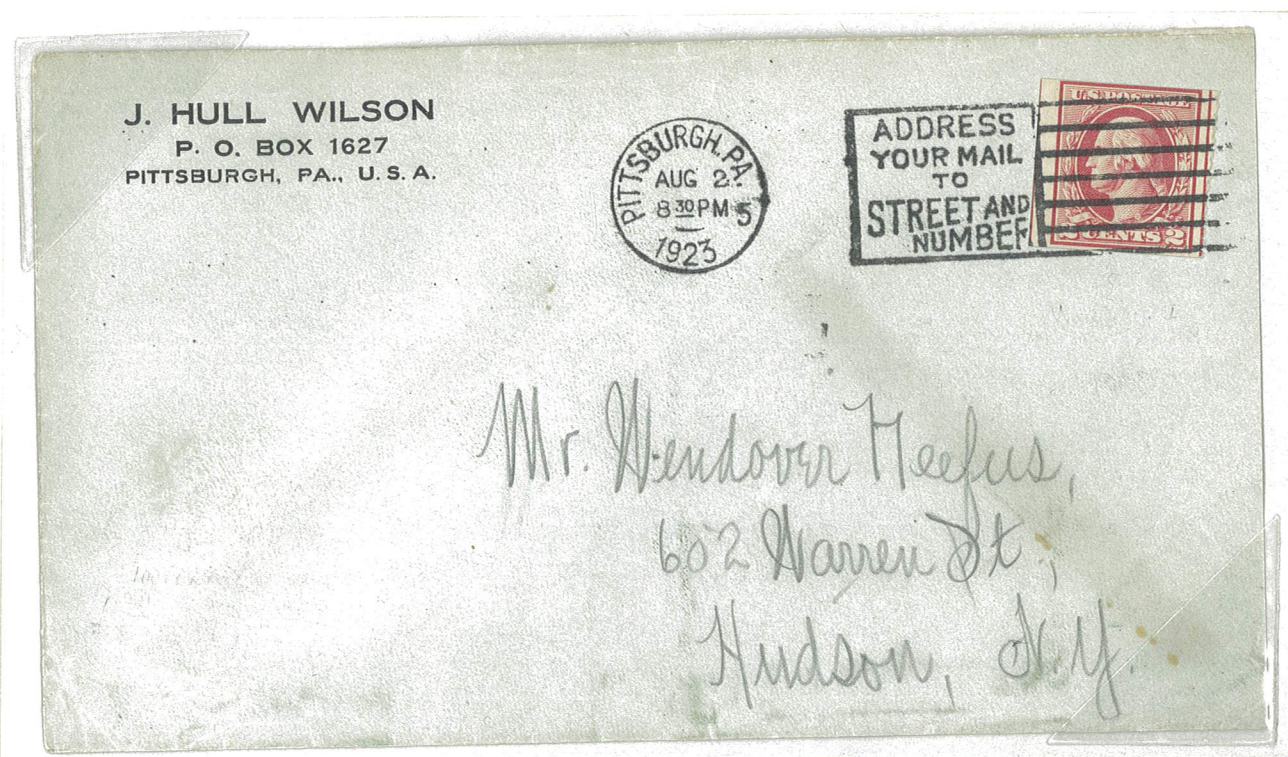 J. HULL WILSON
P. O. BOX 1627
PITTSBURGH, PA., U. S. A.
PITTSBURGH, PA.
AUG 2
8 30 PM
5
1923
ADDRESS
YOUR MAIL
TO
STREET AND
NUMBER
U.S. POSTAGE
2 CENTS 2
Mr. Wendover Neefus,
602 Warren St,
Hudson, N.Y.